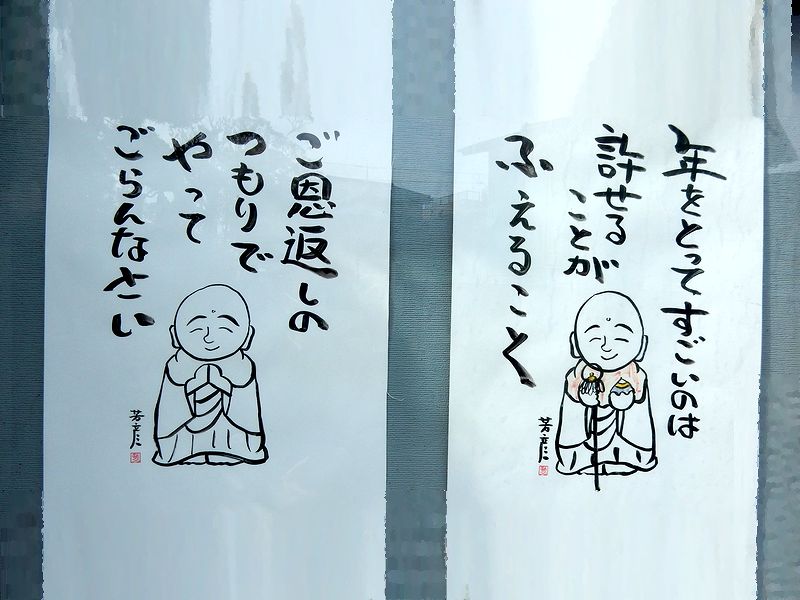 年をとってすごいのは
許せる
ことが
ふえること
ご恩返しの
つもりで
やって
ごらんなさい